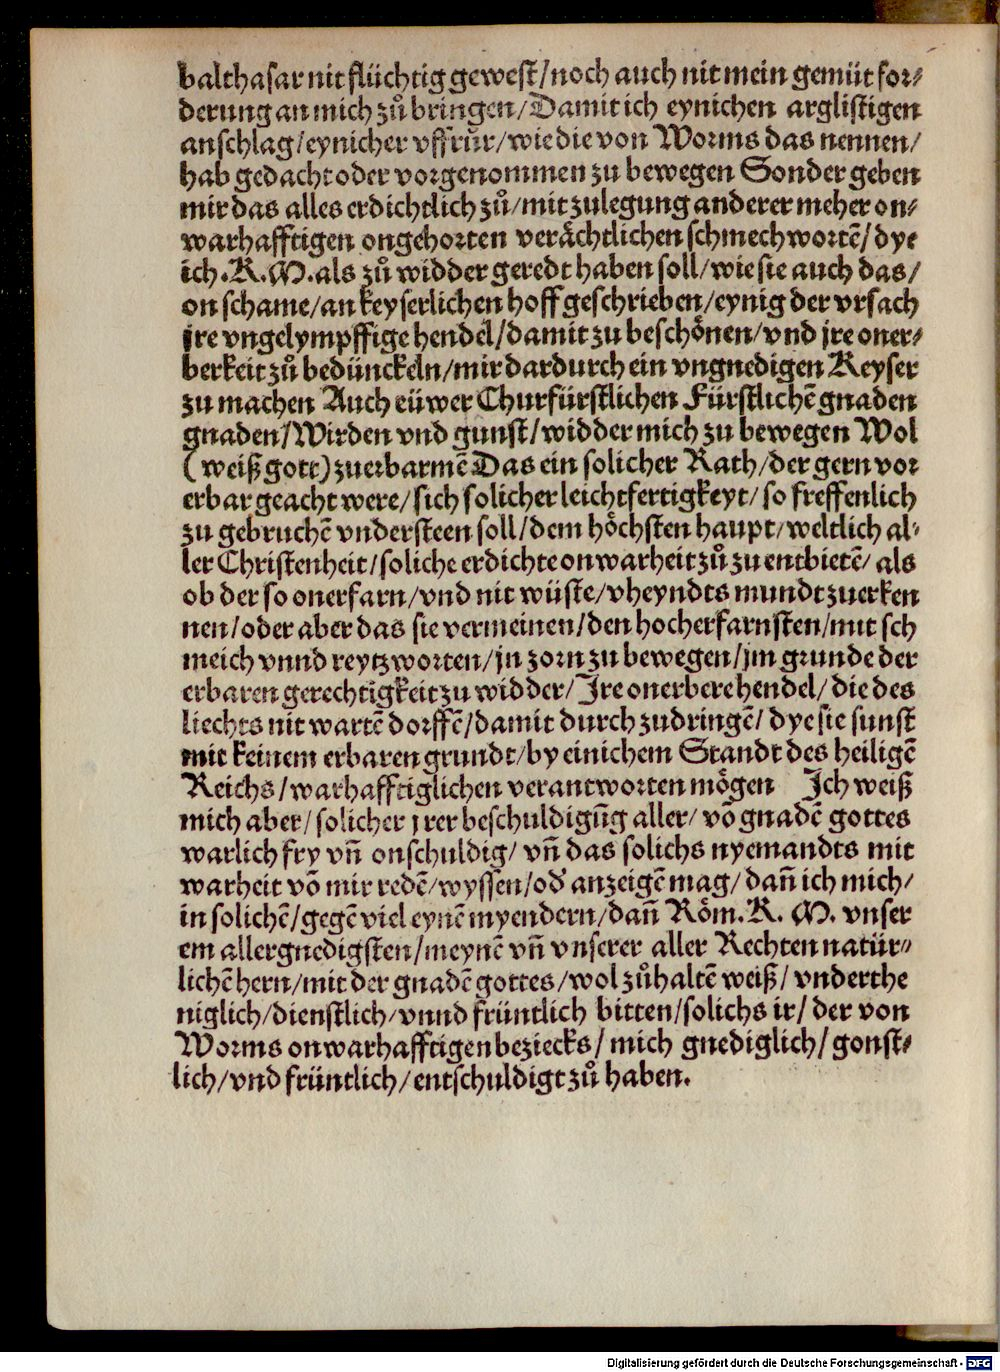 balthasar nit flüchtig gewest/noch auch nit mein gemüt for⸗
derung an mich zů bringen/Damit ich eynichen arglistigen
anschlag/eynicher vffrůr/wie die von Worms das nennen/
hab gedacht oder vorgenommen zu bewegen Sonder geben
mir das alles erdichtlich zů/mit zulegung anderer meher on⸗
warhafftigen ongehorten verächtlichen schmechwortē/dye
ich.K.M.als zů widder geredt haben soll/wie sie auch das/
on schame/an keyserlichen hoff geschrieben/eynig der vrsach
jre vngelympffige hendel/damit zu beschönen/vnd jre oner⸗
berkeit zů bedünckeln/mir dardurch ein vngnedigen Keyser
zu machen Auch eüwer Churfürstlichen Fürstlichē gnaden
gnaden/Wirden vnd gunst/widder mich zu bewegen Wol
(weiß gott)zuerbarmē Das ein solicher Rath/der gern vor
erbar geacht were/sich solicher leichtfertigkeyt/so freffenlich
zu gebruchē vndersteen soll/dem höchsten haupt/weltlich al⸗
ler Christenheit/soliche erdichte onwarheit zů zu entbietē/als
ob der so onerfarn/vnd nit wüste/vheyndts mundt zuerken
nen/oder aber das sie vermeinen/den hocherfarnsten/mit sch
meich vnnd reytzworten/jn zorn zu bewegen/jm grunde der
erbaren gerechtigkeit zu widder/Jre onerbere hendel/die des
liechts nit wartē dorffē/damit durch zudringē/dye sie sunst
mit keinem erbaren grundt/by einichem Standt des heiligē
Reichs/warhafftiglichen verantworten mögen Ich weiß
mich aber/solicher jrer beschuldigūg aller/vō gnadē gottes
warlich fry vn̄ onschuldig/vn̄ das solichs nyemandts mit
warheit vō mir redē/wyssen/od' anzeigē mag/dan̄ ich mich/
in solichē/gegē viel eynē myendern/dan̄ Röm.K.M.vnser
em allergnedigsten/meynē vn̄ vnserer aller Rechten natür⸗
lichē hern/mit der gnadē gottes/wol zůhaltē weiß/vnderthe
niglich/dienstlich/vnnd früntlich bitten/solichs ir/der von
Worms onwarhafftigen beziecks/mich gnediglich/gonst⸗
lich/vnd früntlich/entschuldigt zů haben.
Digitalisierung gefördert durch die Deutsche Forschungsgemeinschaft - DFG